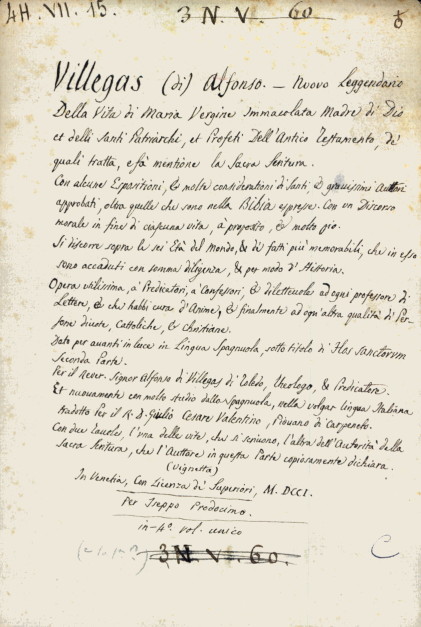 4H. VII. 15. 3 N. V. 60
Villegas (di) Alfonso. — Nuovo Leggendario
Della Vita di Maria Vergine Immacolata Madre di Dio
et delli Santi Patriarchi, et Profeti Dell'Antico Testamento, de'
quali tratta, e fà mentione la Sacra Scrittura.
Con alcune Espositioni, & molte considerationi di Santi, & gravissimi Auttori
approbati, oltra quelle che sono nella Bibia espresse. Con un Discorso
morale in fine di ciascuna vita, à proposito, & molto pio.
Si discorre sopra le sei Età del Mondo, & de' fatti più memorabili, che in esso
sono accaduti con somma diligenza, & per modo d'Historia.
Opera utilissima, à Predicatori, à Confessori, & dilettevole ad ogni professore di
Lettere, & che habbi cura d'Anime, & finalmente ad ogn'altra qualità di Per-
sone divote, Cattoliche, & Christiane.
Data per avanti in luce in Lingua Spagnuola, sotto titolo di Flos Sanctorum
Seconda Parte.
Per il Rever. Signor Alfonso di Villegas di Toledo, Theologo, & Predicatore.
Et nuovamente con molto studio dalla Spagnuola, nella volgar lingua Italiana
tradotto per il R. D. Giulio Cesare Valentino, Piovano di Carpeneto.
Con due Tavole, l'una delle vite, che si scrivono, l'altra dell'Autorità della
Sacra Scrittura, che l'Auttore in questa Parte copiosamente dichiara.
(Vignetta)
In Venetia, Con Licenza de' Superiori, M. DCCI.
Per Iseppo Prodocimo.
in-4°. vol. unico
3 N. V. 60.
C